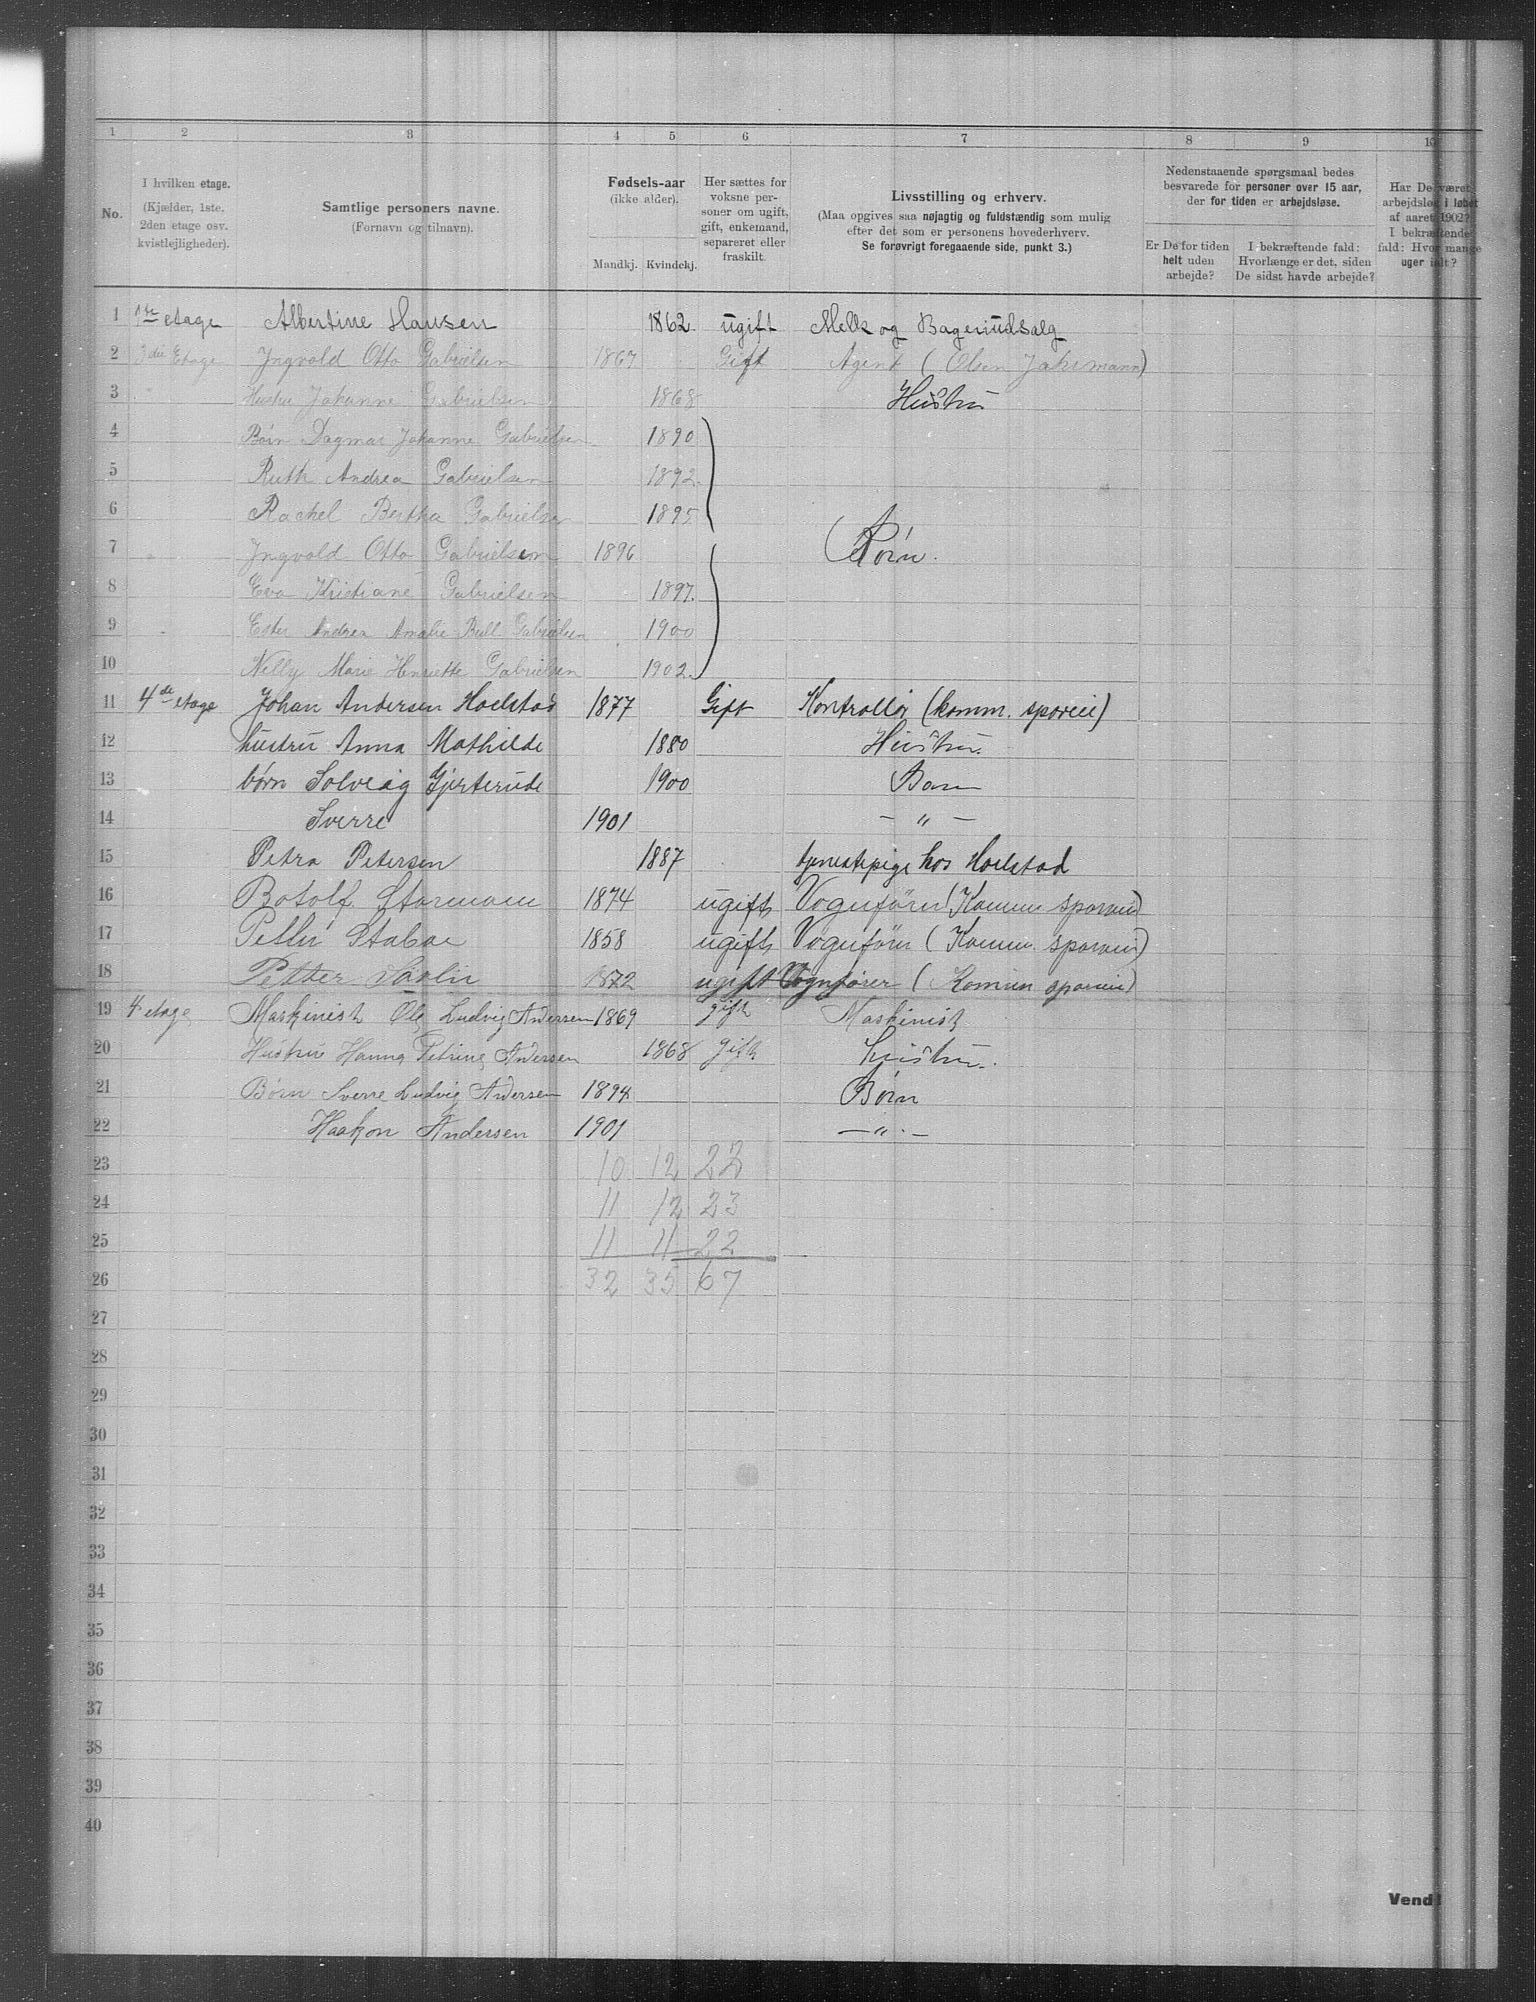 1 2 3 4 5 6 7 8 9 10
No.
I hvilken etage.
(Kjælder, 1ste.
2den etage osv.
kvistlejligheder).
Samtlige personers navne.
(Fornavn og tilnavn).
Fødsels-aar
(ikke alder).
Mandkj. Kvindekj.
Her sættes for
voksne per-
soner om ugift,
gift, enkemand,
separeret eller
fraskilt.
Livsstilling og erhverv.
(Maa opgives saa nøjagtig og fuldstændig som mulig
efter det som er personens hovederhverv.
Se forøvrigt foregaaende side, punkt 3.)
Nedenstaaende spørgsmaal bedes
besvarede for personer over 15 aar,
der for tiden er arbejdsløse.
Er De for tiden
helt uden
arbejde?
I bekræftende fald:
Hvorlænge er det, siden
De sidst havde arbejde?
Har De været
arbejdsløs i løbet
af aaret 1902?
I bekræftende
fald: Hvor mange
uger ialt?
1 1ste etage Albertine Hansen 1862 ugift Melk og Bageriudsalg
2 3die Etage Ingvold Otto Gabrielsen 1867 Gift Agent (Olsen Jahrmann)
3 Hustru Johanne Gabrielsen 1868 Hustru
4 Børn Dagmar Johanne Gabrielsen 1890
5 Ruth Andrea Gabrielsen 1892
6 Rachel Bertha Gabrielsen 1895
7 Ingvold Otto Gabrielsen 1896 Børn.
8 Eva Kristiane Gabrielsen 1897
9 Ester Andrea Amalie Bull Gabrielsen 1900
10 Nelly Marie Henriette Gabrielsen 1902
11 4de etage Johan Andersen Hoelstad 1877 Gift Kontrollør (komm. sporvei)
12 hustru Anna Mathilde 1880 Hustru
13 børn Solveig Gjerterude 1900 Barn
14 Sverre 1901 - " -
15 Petra Petersen 1887 tjenestepige hos Hoelstad
16 Botolf 1874 ugift Vognfører (Komm sporvei)
17 1858 ugift Vognfører (Komm. sporvei)
18 Petter 1872 ugift Vognfører (Komun sporvei)
19 4 etage Maskinist Ole Ludvig Andersen 1869 gift Maskinist
20 Hustru Hanna Petrine Andersen 1868 gift Hustru.
21 Børn Sverre Ludvig Andersen 1894 Børn
22 Haakon Andersen 1901 - " -
23 10 12 22
24 11 12 23
25 11 11 22
26 32 35 67
27
28
29
30
31
32
33
34
35
36
37
38
39
40
Vend!